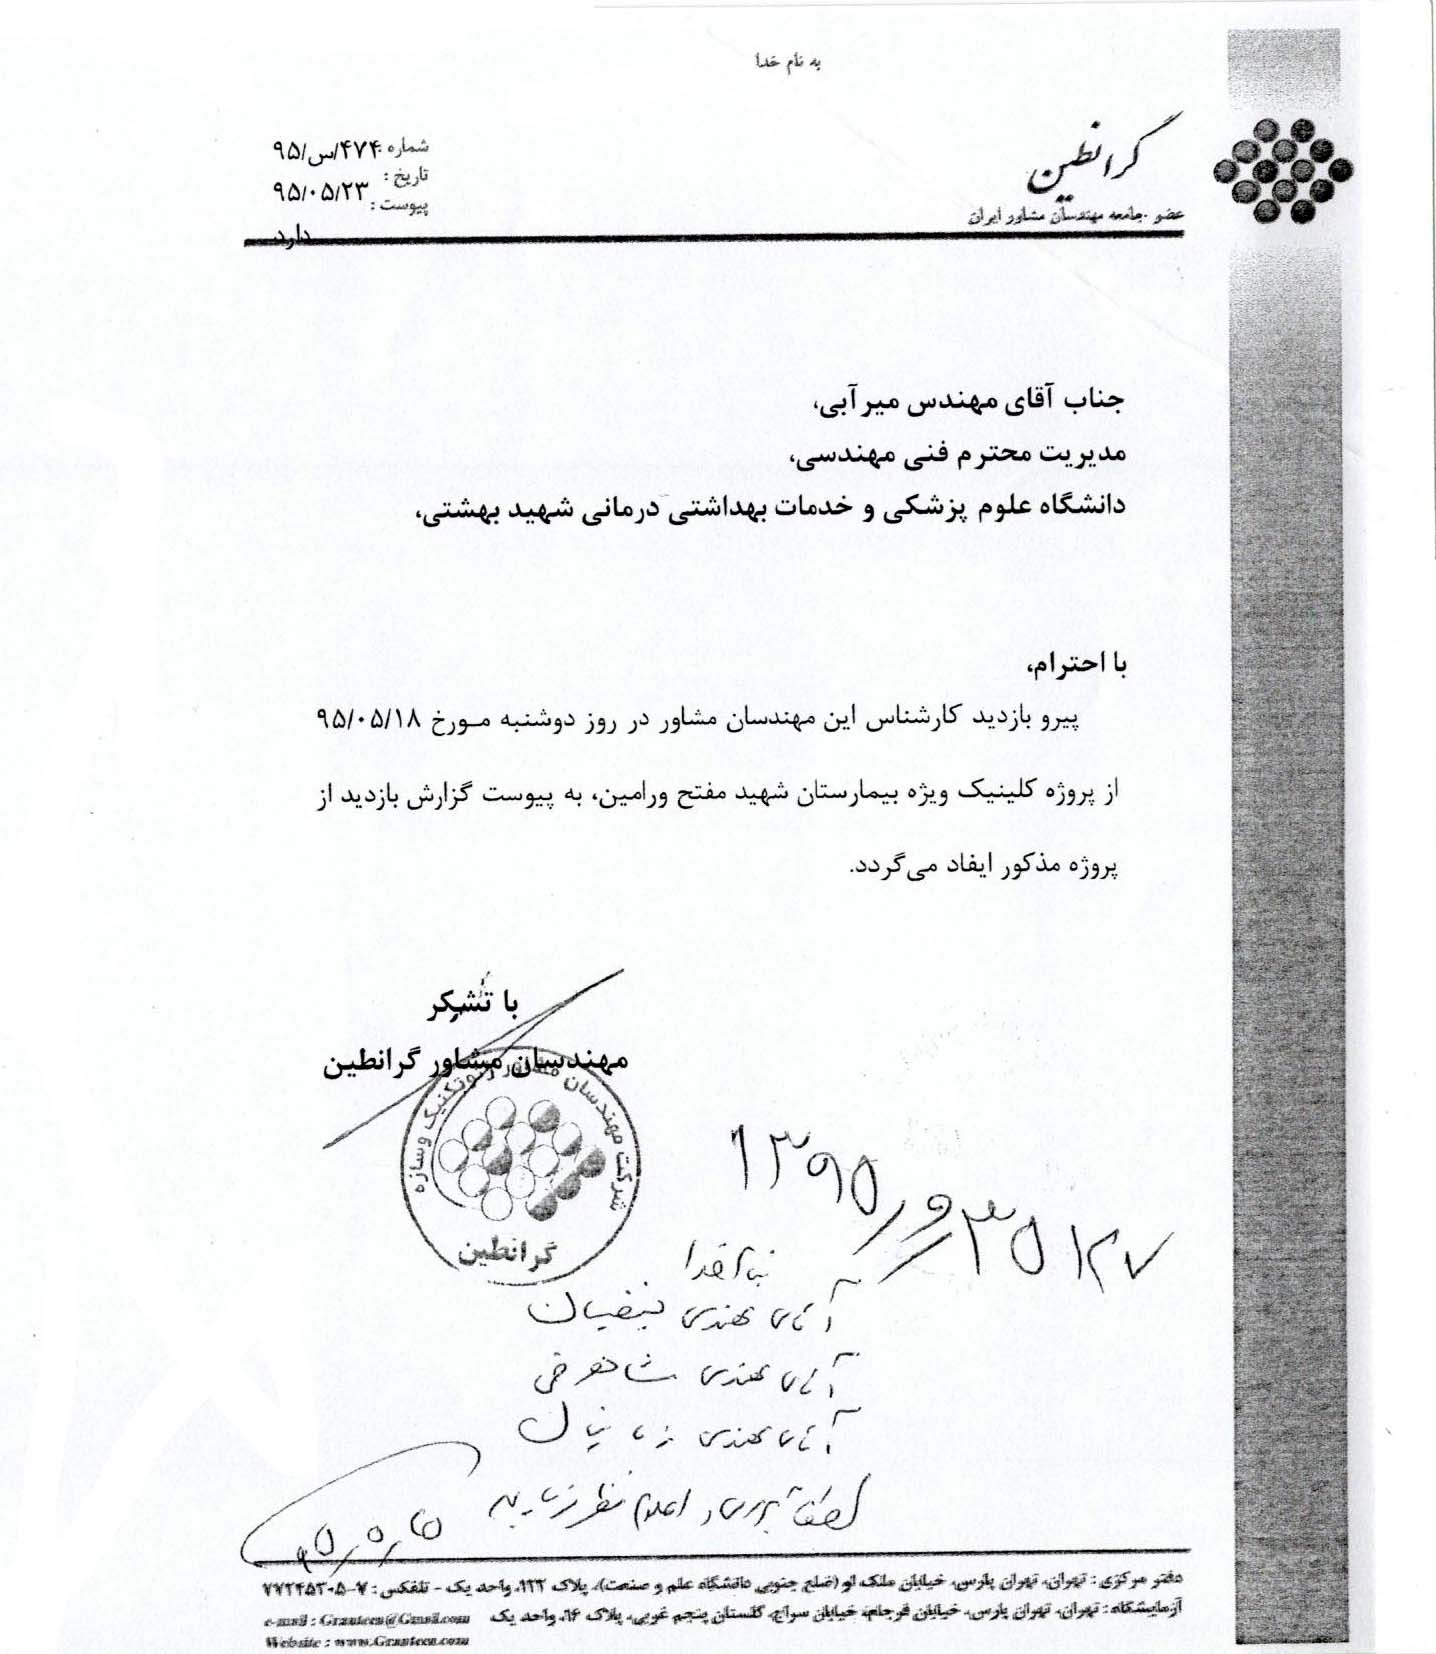 به نام خدا
گرانطین
عضو جامعه مهندسان مشاور ایران
شماره: ۴۷۴/س/۹۵
تاریخ: ۹۵/۰۵/۲۳
پیوست: دارد
جناب آقای مهندس میرآبی،
مدیریت محترم فنی مهندسی،
دانشگاه علوم پزشکی و خدمات بهداشتی درمانی شهید بهشتی،
با احترام،
پیرو بازدید کارشناس این مهندسان مشاور در روز دوشنبه مورخ ۹۵/۰۵/۱۸
از پروژه کلینیک ویژه بیمارستان شهید مفتح ورامین، به پیوست گزارش بازدید از
پروژه مذکور ایفاد می‌گردد.
با تشکر
مهندسان مشاور گرانطین
شرکت مهندسان مشاور ژئوتکنیک و سازه
گرانطین
۱۳۹۵
بنام خدا
آقای مهندس
آقای مهندس
آقای مهندس
لطفاً بررسی و اعلام نظر فرمایید
دفتر مرکزی: تهران، تهران پارس، خیابان ملک لو (ضلع جنوبی دانشگاه علم و صنعت)، پلاک ۱۲۲، واحد یک - تلفکس: ۷-۷۷۲۴۵۳۰۵
آزمایشگاه: تهران، تهران پارس، خیابان فرجام، خیابان سراج، گلستان پنجم غربی، پلاک ۱۶، واحد یک e-mail : Grauteen@Gmail.com
Website : www.Granteen.com